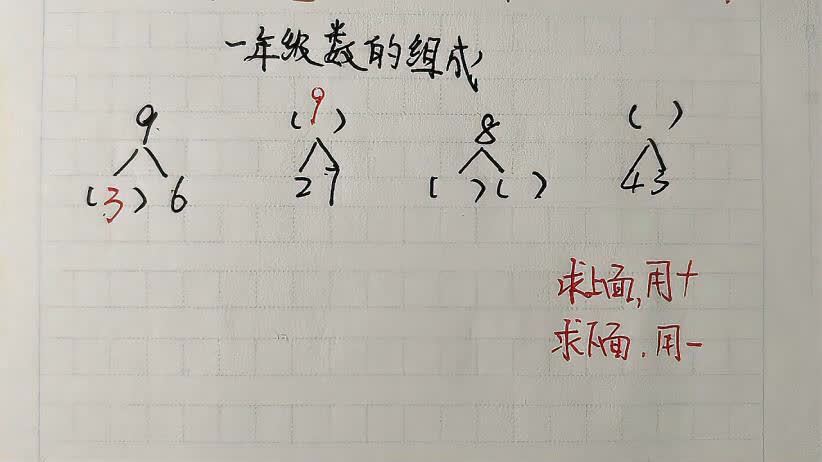 一年级数的组成
9 (9) 8 ( )
(3) 6 2 7 ( ) ( ) 4 3
求上面,用+
求下面.用-